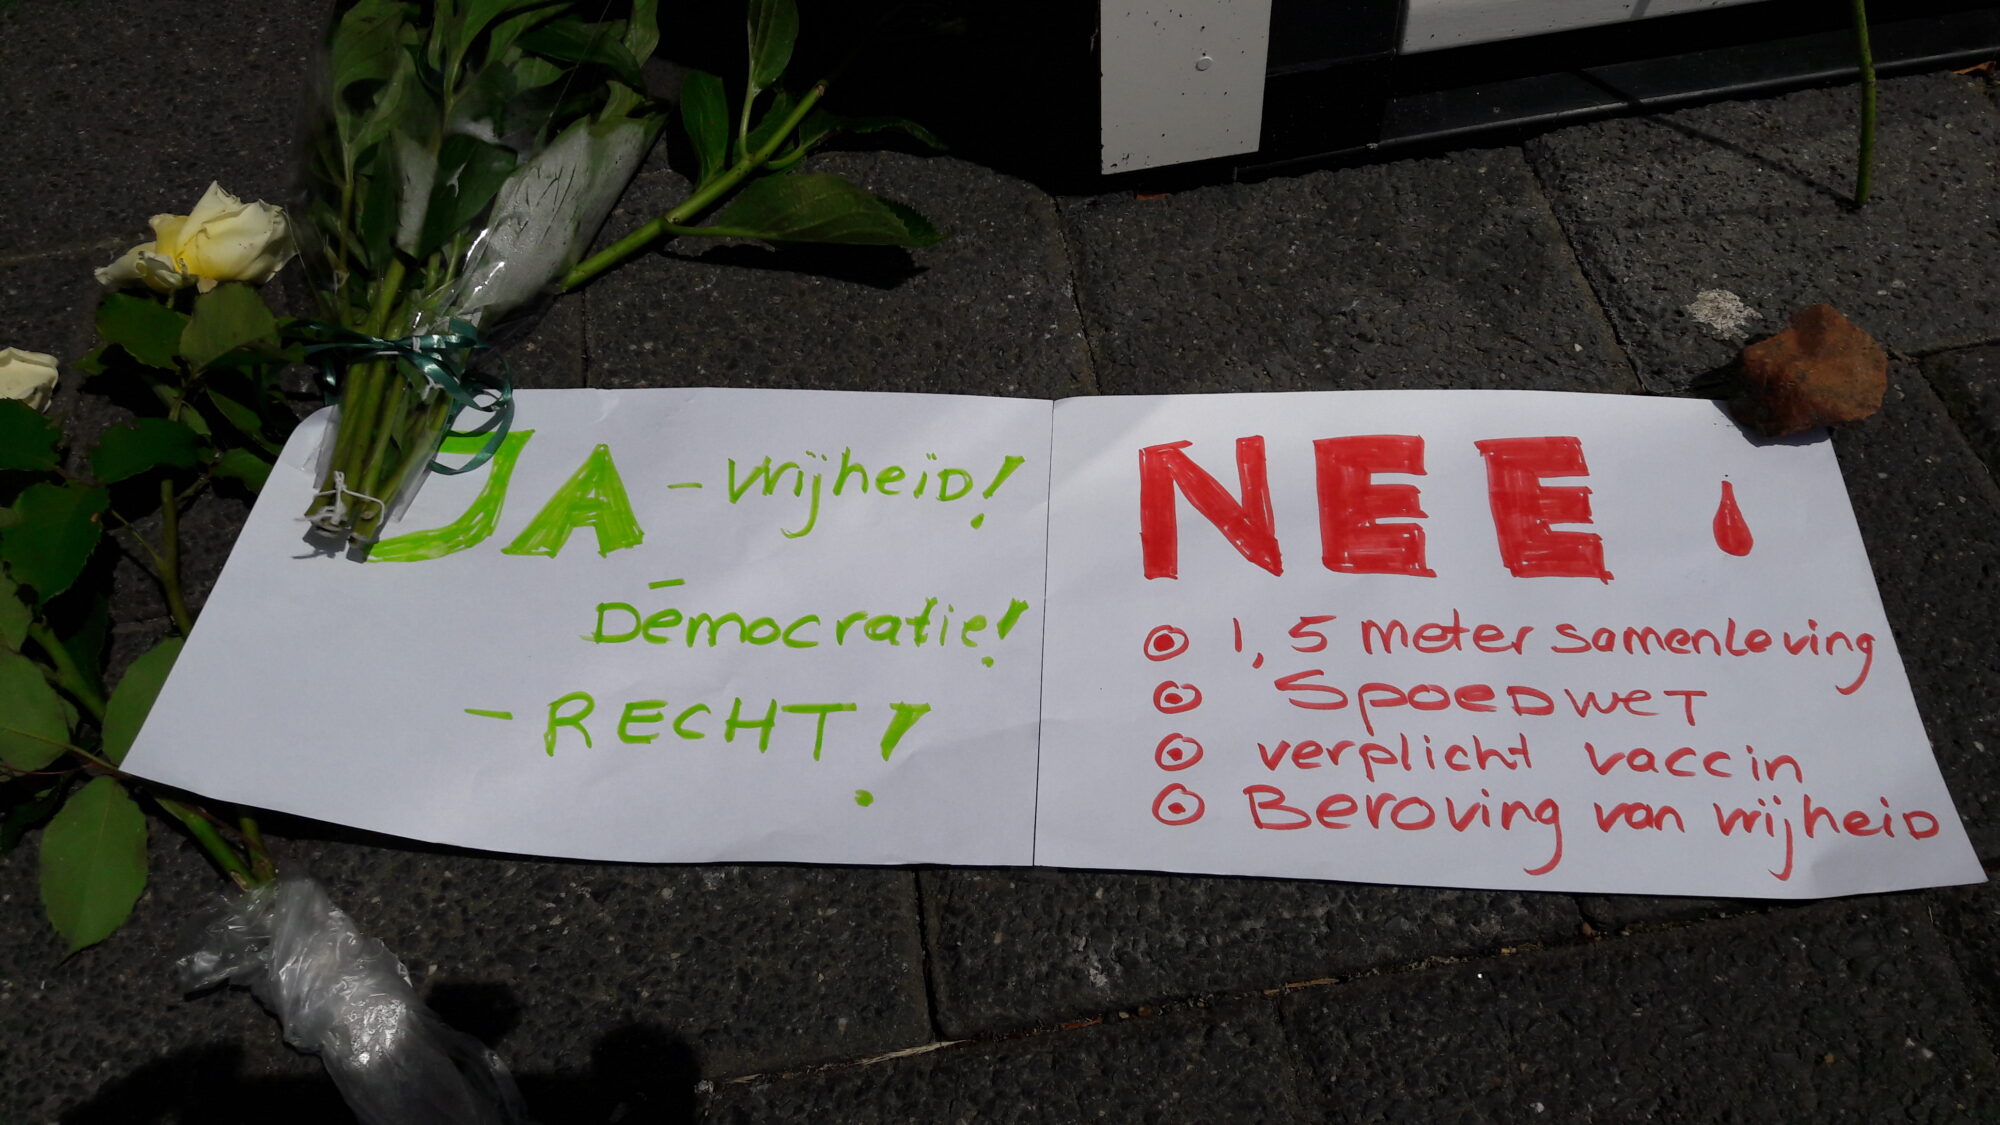 JA - Vrijheid!
- Democratie!
- RECHT!
NEE !
1,5 meter samenleving
Spoedwet
verplicht vaccin
Beroving van vrijheid